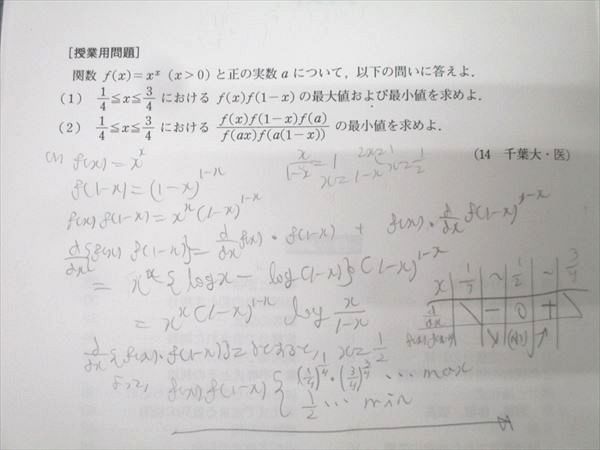 ［授業用問題］
関数 f(x)=x^x (x>0) と正の実数 a について，以下の問いに答えよ．
(1) 1/4≦x≦3/4 における f(x)f(1-x) の最大値および最小値を求めよ．
(2) 1/4≦x≦3/4 における f(x)f(1-x)f(a)/f(ax)f(a(1-x)) の最小値を求めよ．
(14 千葉大・医)
(1) f(x)=x^x
x/(1-x)=1 2x=1
x=1-x x=1/2
f(1-x)=(1-x)^(1-x)
f(x)f(1-x)=x^x(1-x)^(1-x)
d/dx{f(x)f(1-x)}=d/dx f(x)・f(1-x) + f(x)・d/dx f(1-x)^(1-x)
= x^x{logx-log(1-x)}(1-x)^(1-x)
= x^x(1-x)^(1-x) log x/(1-x)
x 1/4 ~ 1/2 ~ 3/4
d/dx - 0 +
f(x)f(1-x) ↘ ↗
d/dx{f(x)・f(1-x)}=0とすると, x=1/2
よって, f(x)f(1-x) { (1/4)^(1/4)・(3/4)^(3/4) … max
1/2 … min